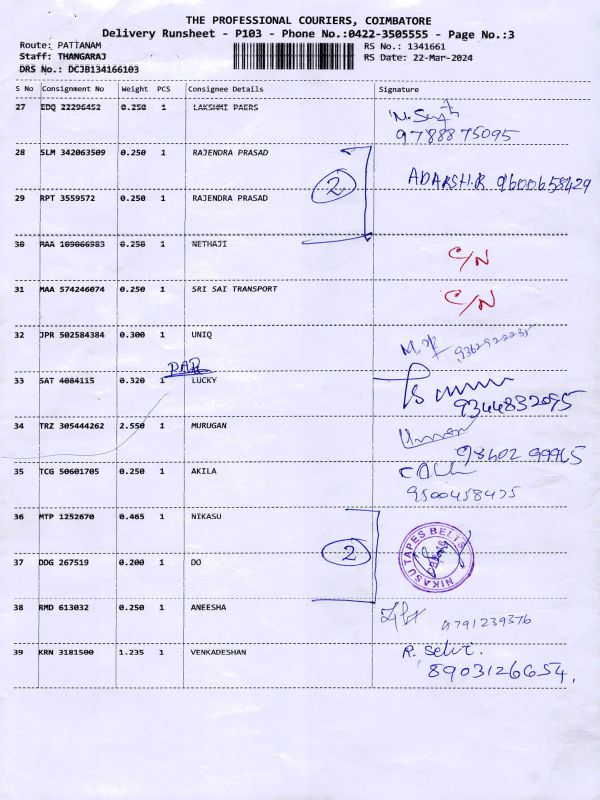 THE PROFESSIONAL COURIERS, COIMBATORE
Delivery Runsheet - P103 - Phone No.:0422-3505555 - Page No.:3
Route: PATTANAM RS No.: 1341661
Staff: THANGARAJ RS Date: 22-Mar-2024
DRS No.: DCJB134166103
S No Consignment No Weight PCS Consignee Details Signature
27 EDQ 22296452 0.250 1 LAKSHMI PAERS
9788875095
28 SLM 342063509 0.250 1 RAJENDRA PRASAD
2 ADARSH.R 9600658429
29 RPT 3559572 0.250 1 RAJENDRA PRASAD
30 MAA 109066983 0.250 1 NETHAJI C/N
31 MAA 574246074 0.250 1 SRI SAI TRANSPORT C/N
32 JPR 502584384 0.300 1 UNIQ
33 SAT 4084115 0.320 1 LUCKY
9344832095
34 TRZ 305444262 2.550 1 MURUGAN
98602 99965
35 TCG 50601705 0.250 1 AKILA
9500458425
36 MTP 1252670 0.465 1 NIKASU
2 NIKASU TAPES BELTS
37 DDG 267519 0.200 1 DO
38 RMD 613032 0.250 1 ANEESHA 9791239376
39 KRN 3181500 1.235 1 VENKADESHAN R. Selvi.
8903126654.